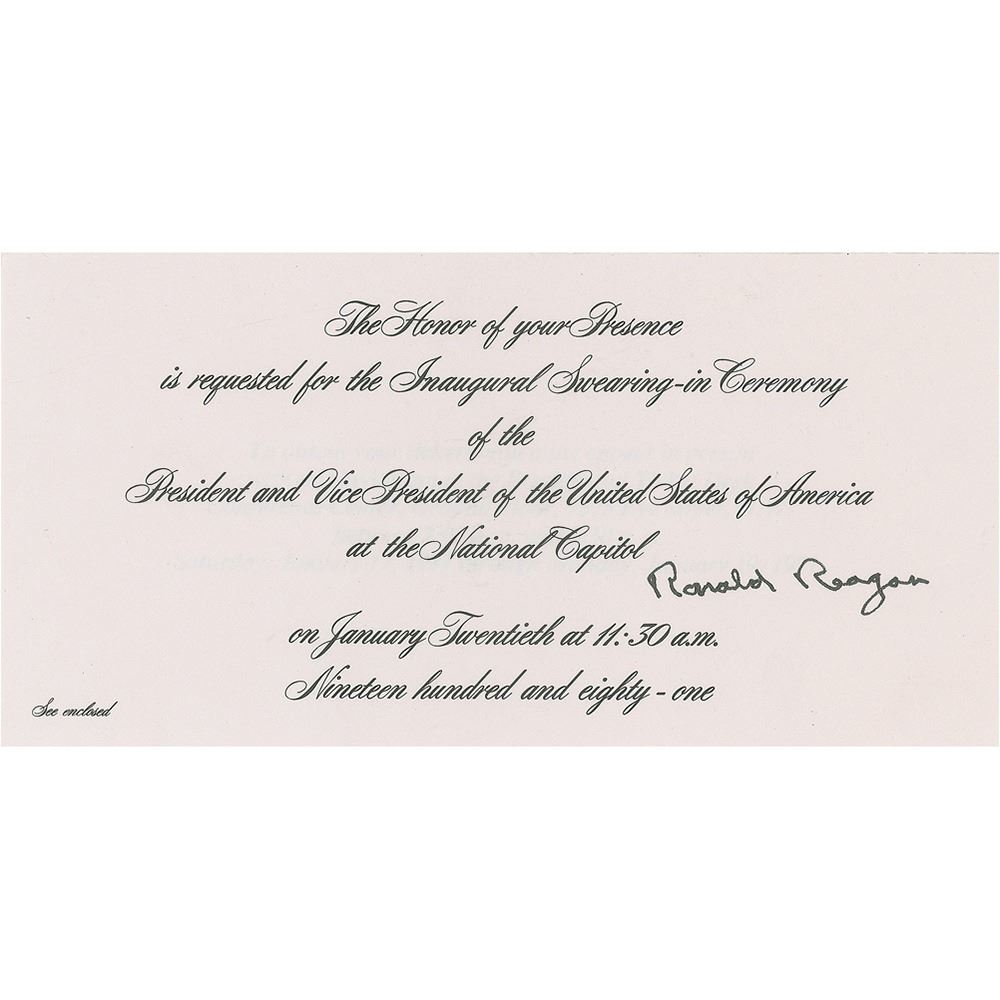 The Honor of your Presence
is requested for the Inaugural Swearing-in Ceremony
of the
President and Vice President of the United States of America
at the National Capitol
Ronald Reagan
on January Twentieth at 11:30 a.m.
Nineteen hundred and eighty - one
See enclosed